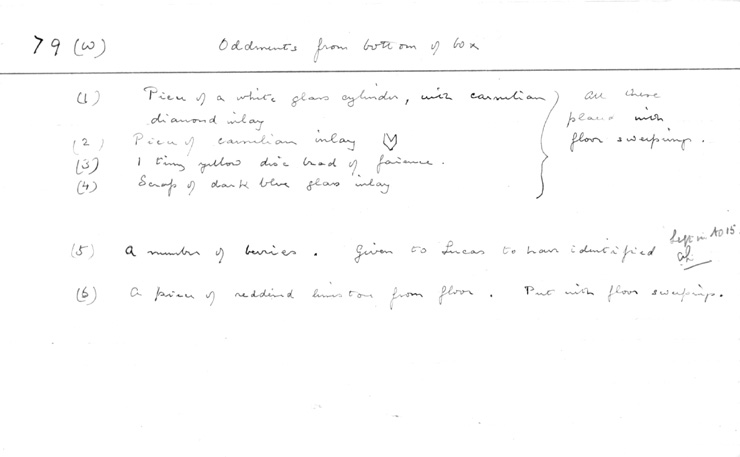 79 (w) Oddments from bottom of box
(1) Piece of a white glass cylinder, with carnelian
diamond inlay
(2) Piece of carnelian inlay
(3) 1 tiny yellow disc bead of faience.
(4) Scrap of dark blue glass inlay
All these
placed with
floor sweepings.
(5) A number of berries. Given to Lucas to have identified
Left in No 15.
(6) A piece of reddind limestone from floor. Put with floor sweepings.